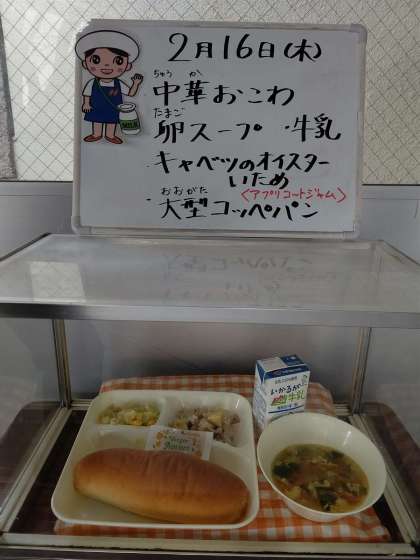 2月16日(木)
ちゅう か
中華おこわ
たまご
卵スープ ・牛乳
キャベツのオイスター
いため
〈アプリコットジャム〉
おおがた
大型コッペパン
MILK
いかるが
牛乳